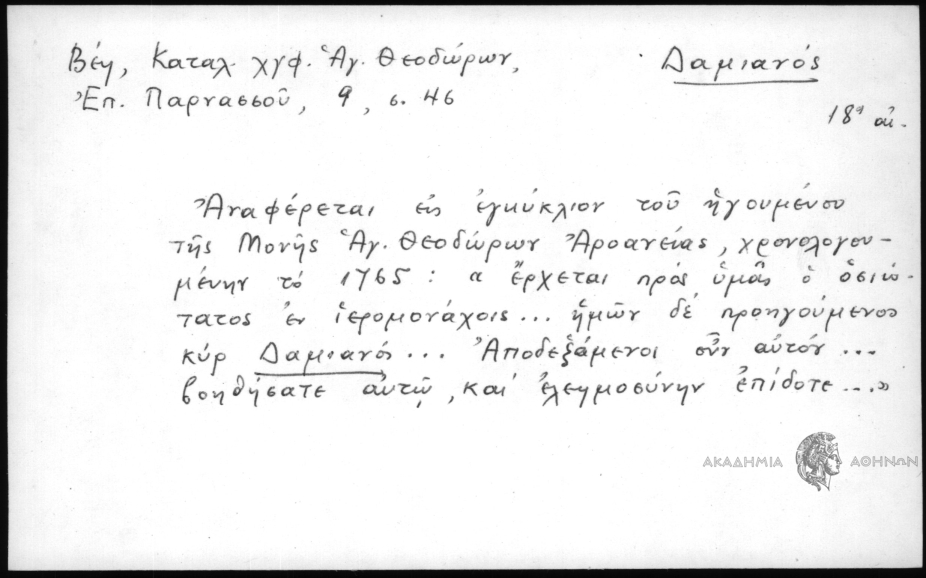 Βέη, Καταλ. χγφ. Ἁγ. Θεοδώρων,
Ἐπ. Παρνασσοῦ, 9, σ. 46
Δαμιανός
18ος αἰ.
Ἀναφέρεται εἰς ἐγκύκλιον τοῦ ἡγουμένου
τῆς Μονῆς Ἁγ. Θεοδώρων Ἀροανείας, χρονολογου-
μένην τὸ 1765: « ἔρχεται πρὸς ὑμᾶς ὁ ὁσιώ-
τατος ἐν ἱερομονάχοις... ἡμῶν δὲ προηγούμενος
κὺρ Δαμιανός... Ἀποδεξάμενοι οὖν αὐτόν...
βοηθήσατε αὐτῷ, καὶ ἐλεημοσύνην ἐπίδοτε....»
ΑΚΑΔΗΜΙΑ ΑΘΗΝΩΝ